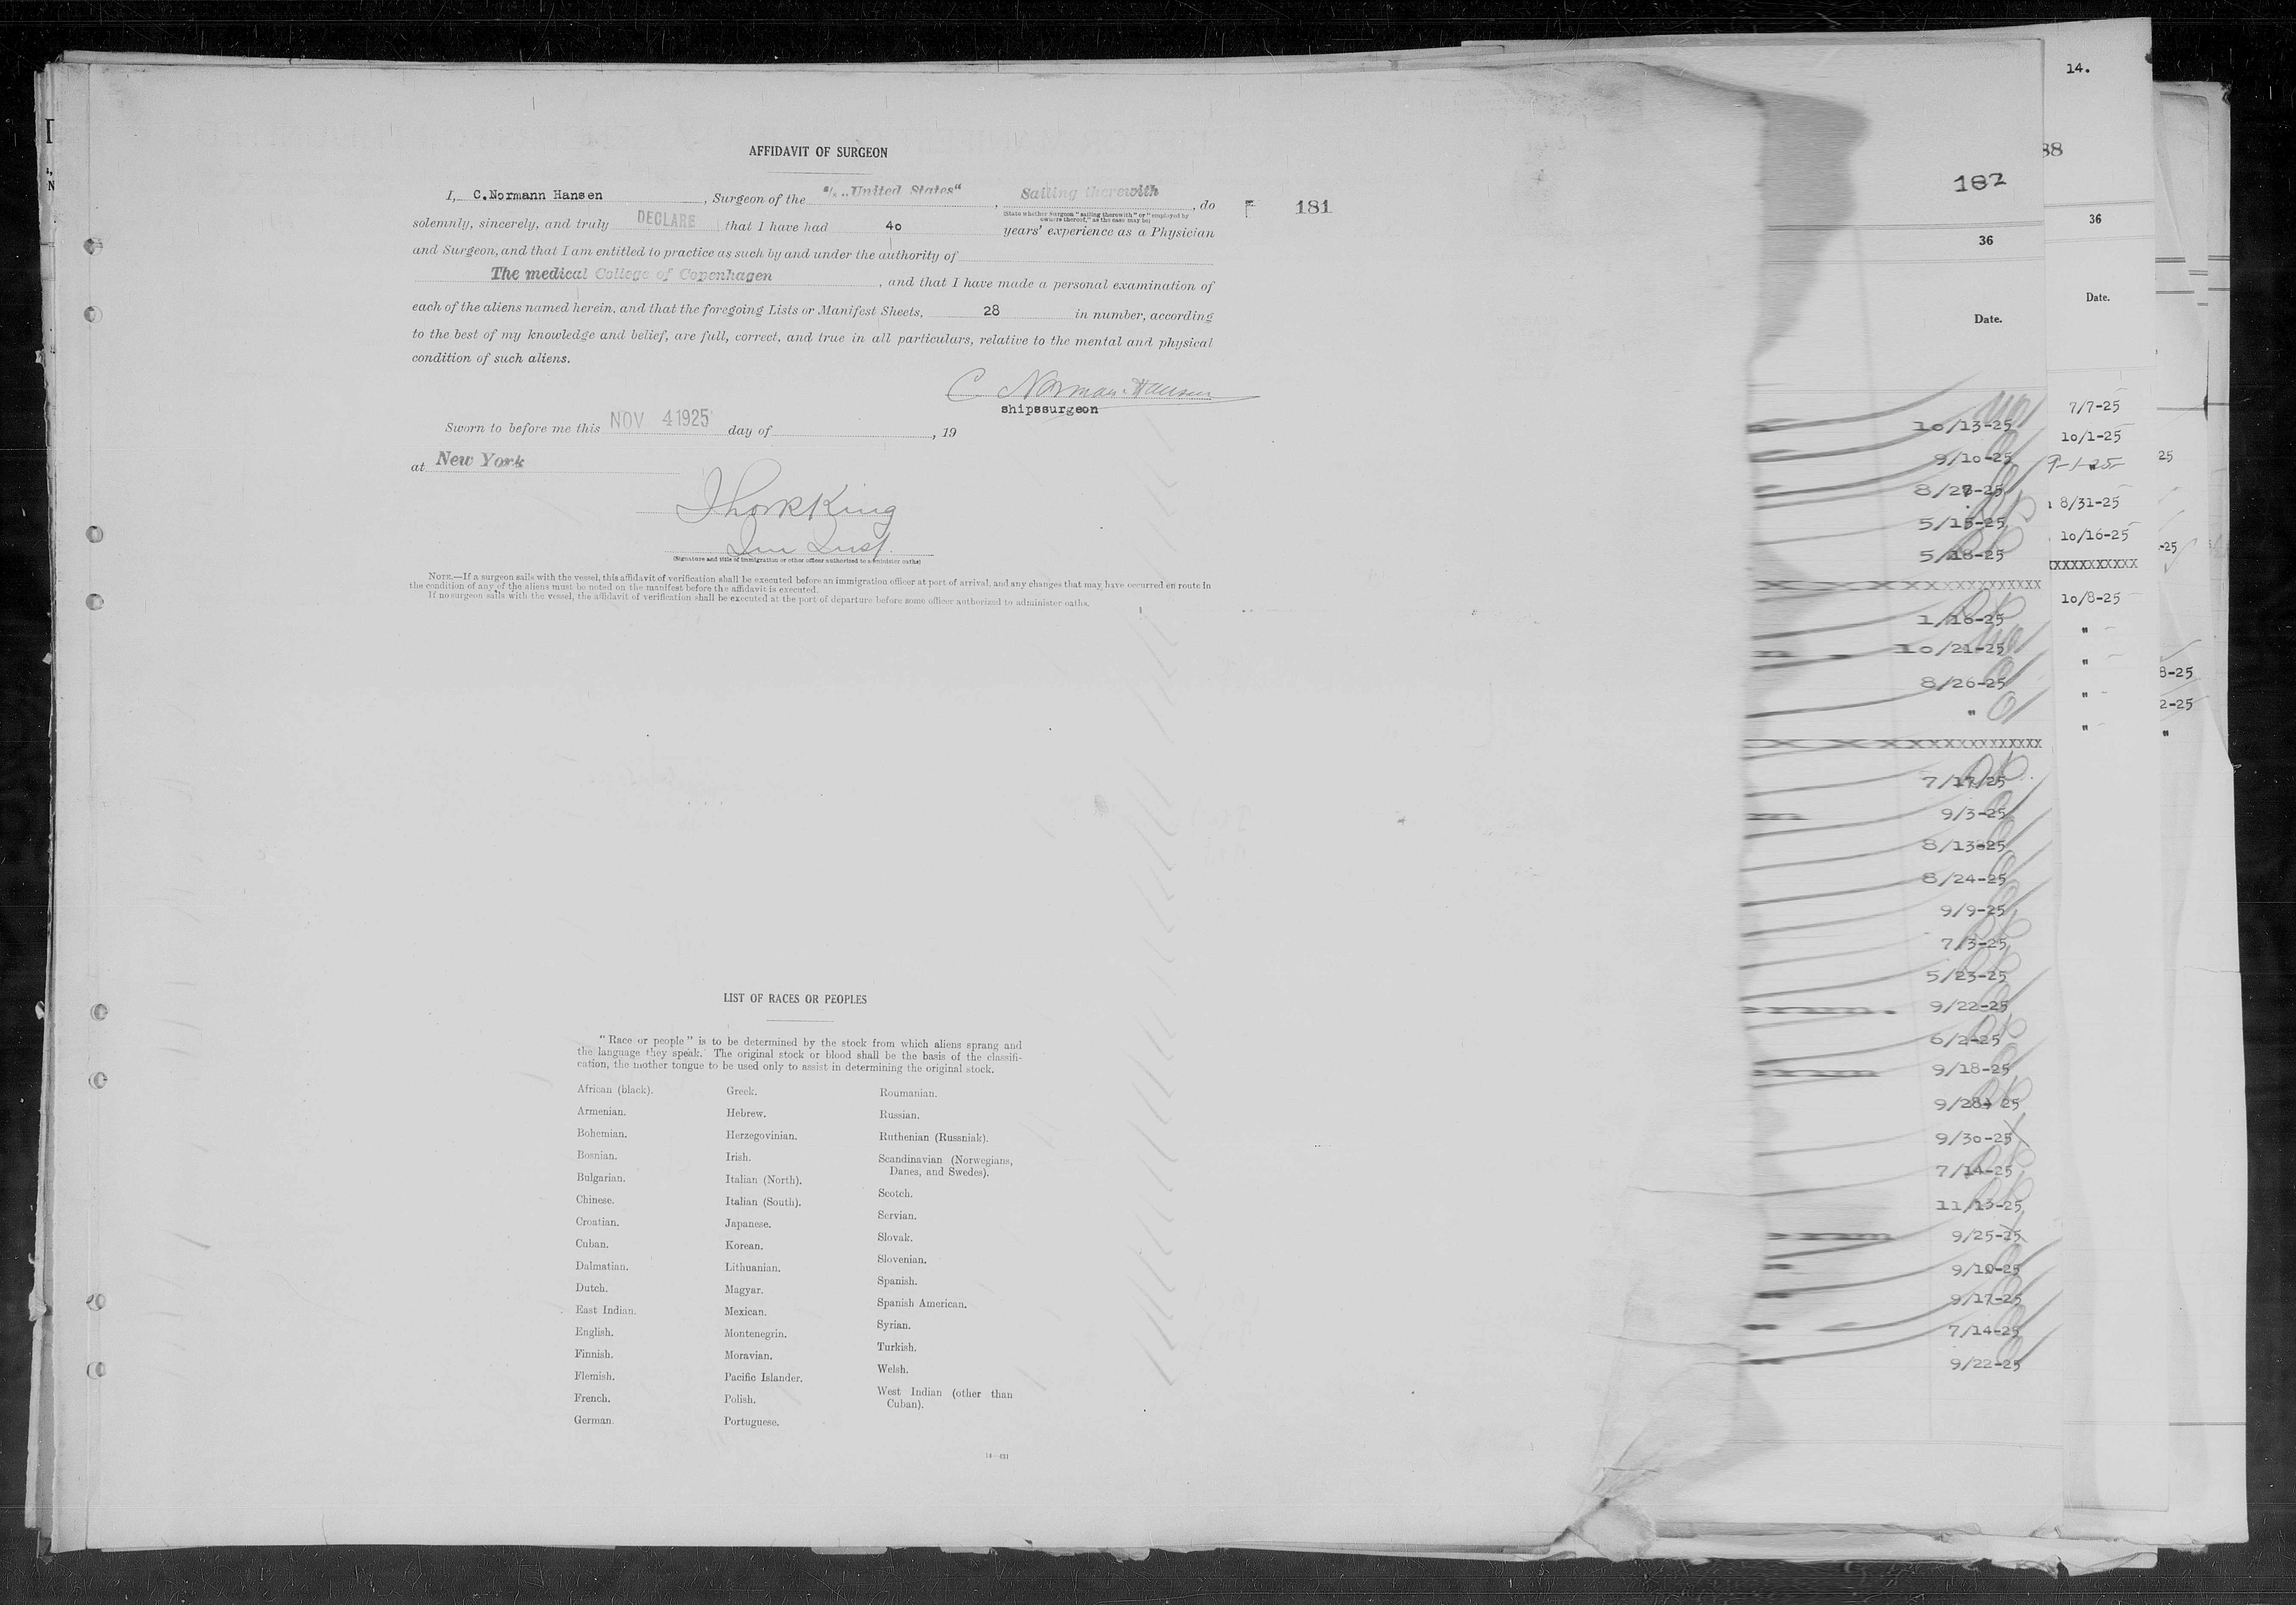 AFFIDAVIT OF SURGEON
I, C.Normann Hansen, Surgeon of the s/s „United States“, Sailing therewith, do
(State whether Surgeon "sailing therewith" or "employed by owners thereof," as the case may be)
solemnly, sincerely, and truly DECLARE that I have had 40 years' experience as a Physician
and Surgeon, and that I am entitled to practice as such by and under the authority of
The medical College of Copenhagen, and that I have made a personal examination of
each of the aliens named herein, and that the foregoing Lists or Manifest Sheets, 28 in number, according
to the best of my knowledge and belief, are full, correct, and true in all particulars, relative to the mental and physical
condition of such aliens.
C Norman-Hansen
shipssurgeon
Sworn to before me this NOV 4 1925 day of , 19
at New York
King
(Signature and title of immigration or other officer authorized to administer oaths)
NOTE.—If a surgeon sails with the vessel, this affidavit of verification shall be executed before an immigration officer at port of arrival, and any changes that may have occurred en route in
the condition of any of the aliens must be noted on the manifest before the affidavit is executed.
If no surgeon sails with the vessel, the affidavit of verification shall be executed at the port of departure before some officer authorized to administer oaths.
181
LIST OF RACES OR PEOPLES
"Race or people" is to be determined by the stock from which aliens sprang and
the language they speak. The original stock or blood shall be the basis of the classifi-
cation, the mother tongue to be used only to assist in determining the original stock.
African (black).
Armenian.
Bohemian.
Bosnian.
Bulgarian.
Chinese.
Croatian.
Cuban.
Dalmatian.
Dutch.
East Indian.
English.
Finnish.
Flemish.
French.
German.
Greek.
Hebrew.
Herzegovinian.
Irish.
Italian (North).
Italian (South).
Japanese.
Korean.
Lithuanian.
Magyar.
Mexican.
Montenegrin.
Moravian.
Pacific Islander.
Polish.
Portuguese.
Roumanian.
Russian.
Ruthenian (Russniak).
Scandinavian (Norwegians,
Danes, and Swedes).
Scotch.
Servian.
Slovak.
Slovenian.
Spanish.
Spanish American.
Syrian.
Turkish.
Welsh.
West Indian (other than
Cuban).
182
36
Date.
10/13-25
9/10-25
5/15-25
5/18-25
xxxxxxxxxxxxx
1/16-25
10/21-25
8/26-25
"
xxxxxxxxxxxxx
7/17/25
9/3-25
8/13-25
8/24-25
9/9-25
7/3-25
5/23-25
9/22-25
6/2-25
9/18-25
9/28-25
9/30-25
7/14-25
11/13-25
9/25-25
9/10-25
9/17-25
7/14-25
9/22-25
14.
88
36
Date.
7/7-25
10/1-25
9-1-25
8/31-25
10/16-25
xxxxxxxxxx
10/8-25
"
"
"
"
25
-25
8-25
2-25
"